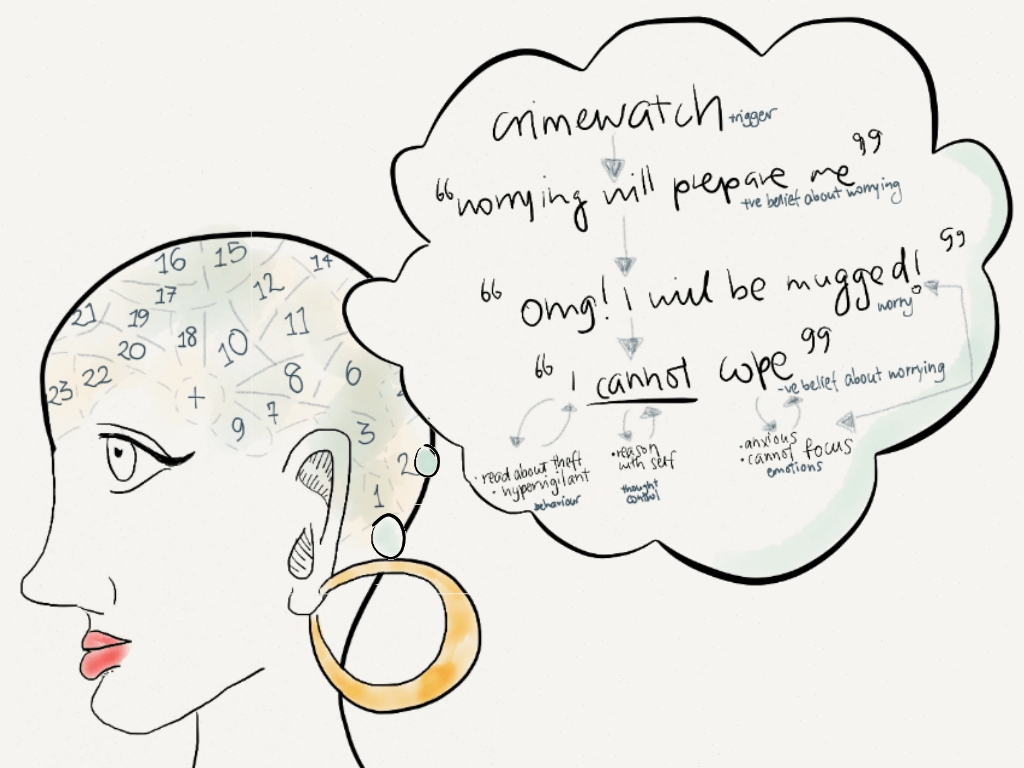 crimewatch trigger
"worrying will prepare me"
+ve belief about worrying
"omg! I will be mugged!"
worry
"I cannot cope"
-ve belief about worrying
• read about theft
• hypervigilant
behaviour
• reason
with self
thought
control
• anxious
• cannot focus
emotions
16 15 14
17 12
21 19 18 10 11
20
23 22 + 8 6
9 7 3
2
1